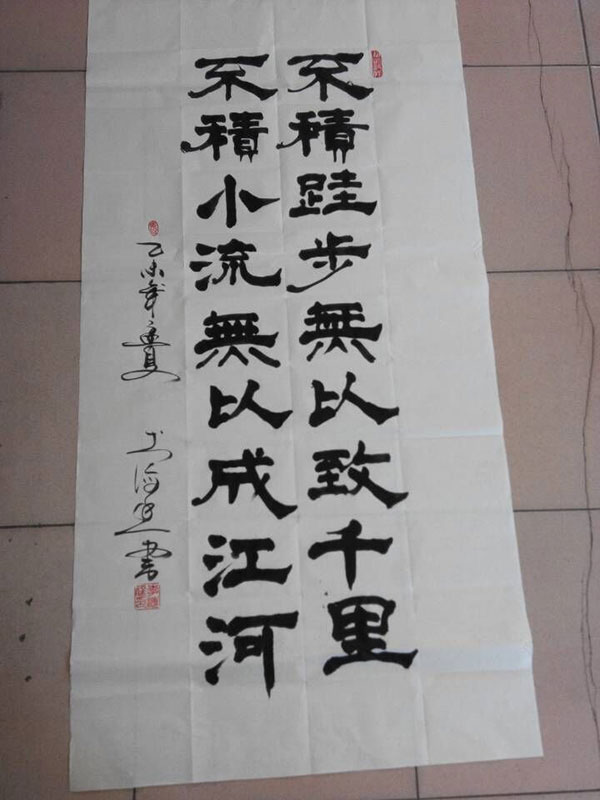 不積跬步無以致千里
不積小流無以成江河
乙未年之夏
书